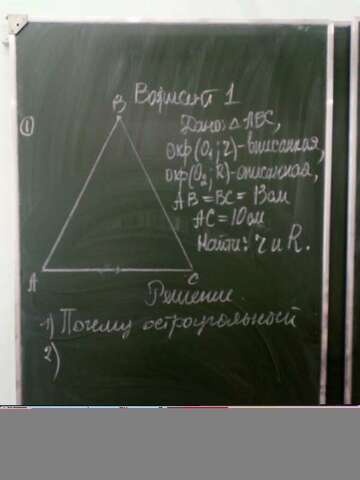 Вариант 1
①
B
Дано: △ABC,
окр(O₁; r)-вписанная,
окр(O₂, R)-описанная,
AB = BC = 13 см
AC = 10 см
Найти: r и R.
A
C
Решение.
1) Почему остроугольный
2)